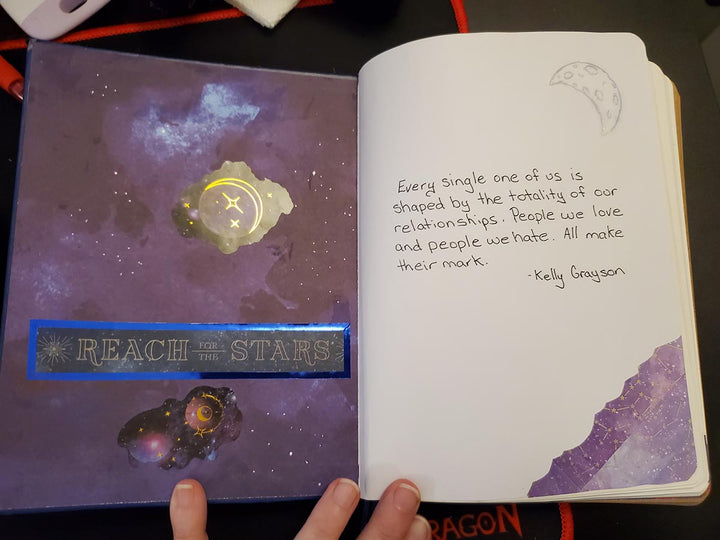 REACH FOR THE STARS
Every single one of us is
shaped by the totality of our
relationships. People we love
and people we hate. All make
their mark.
-Kelly Grayson
RAGON